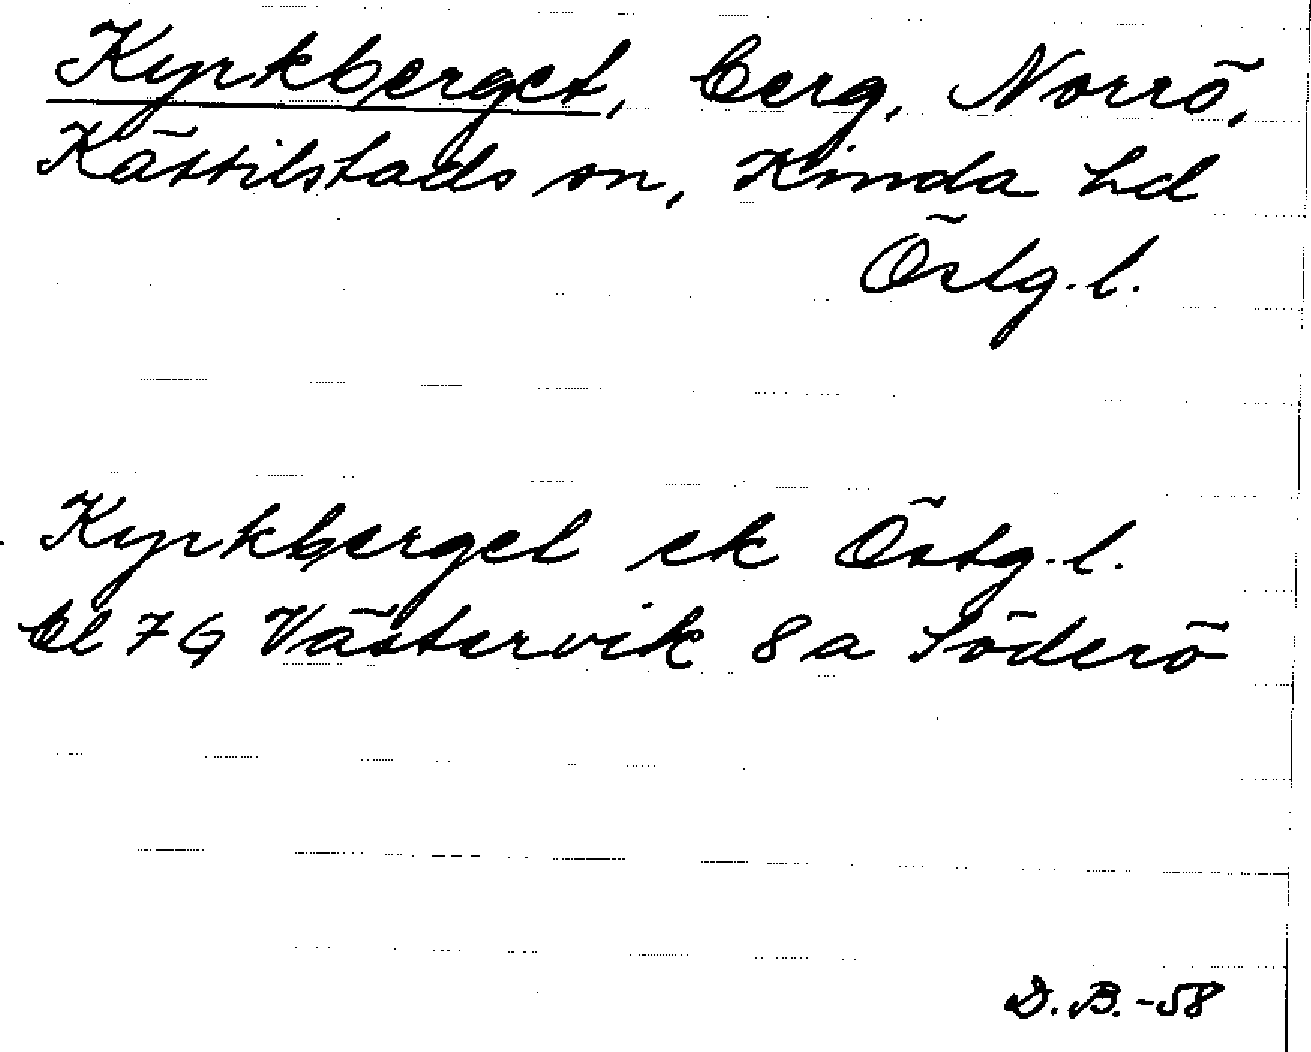 Kyrkberget, berg, Norrö,
Kättilstads sn, Kinda hd
Östg.l.
Kyrkberget ek Östg.l.
bl 7 G Västervik 8 a Söderö
D.B.-58